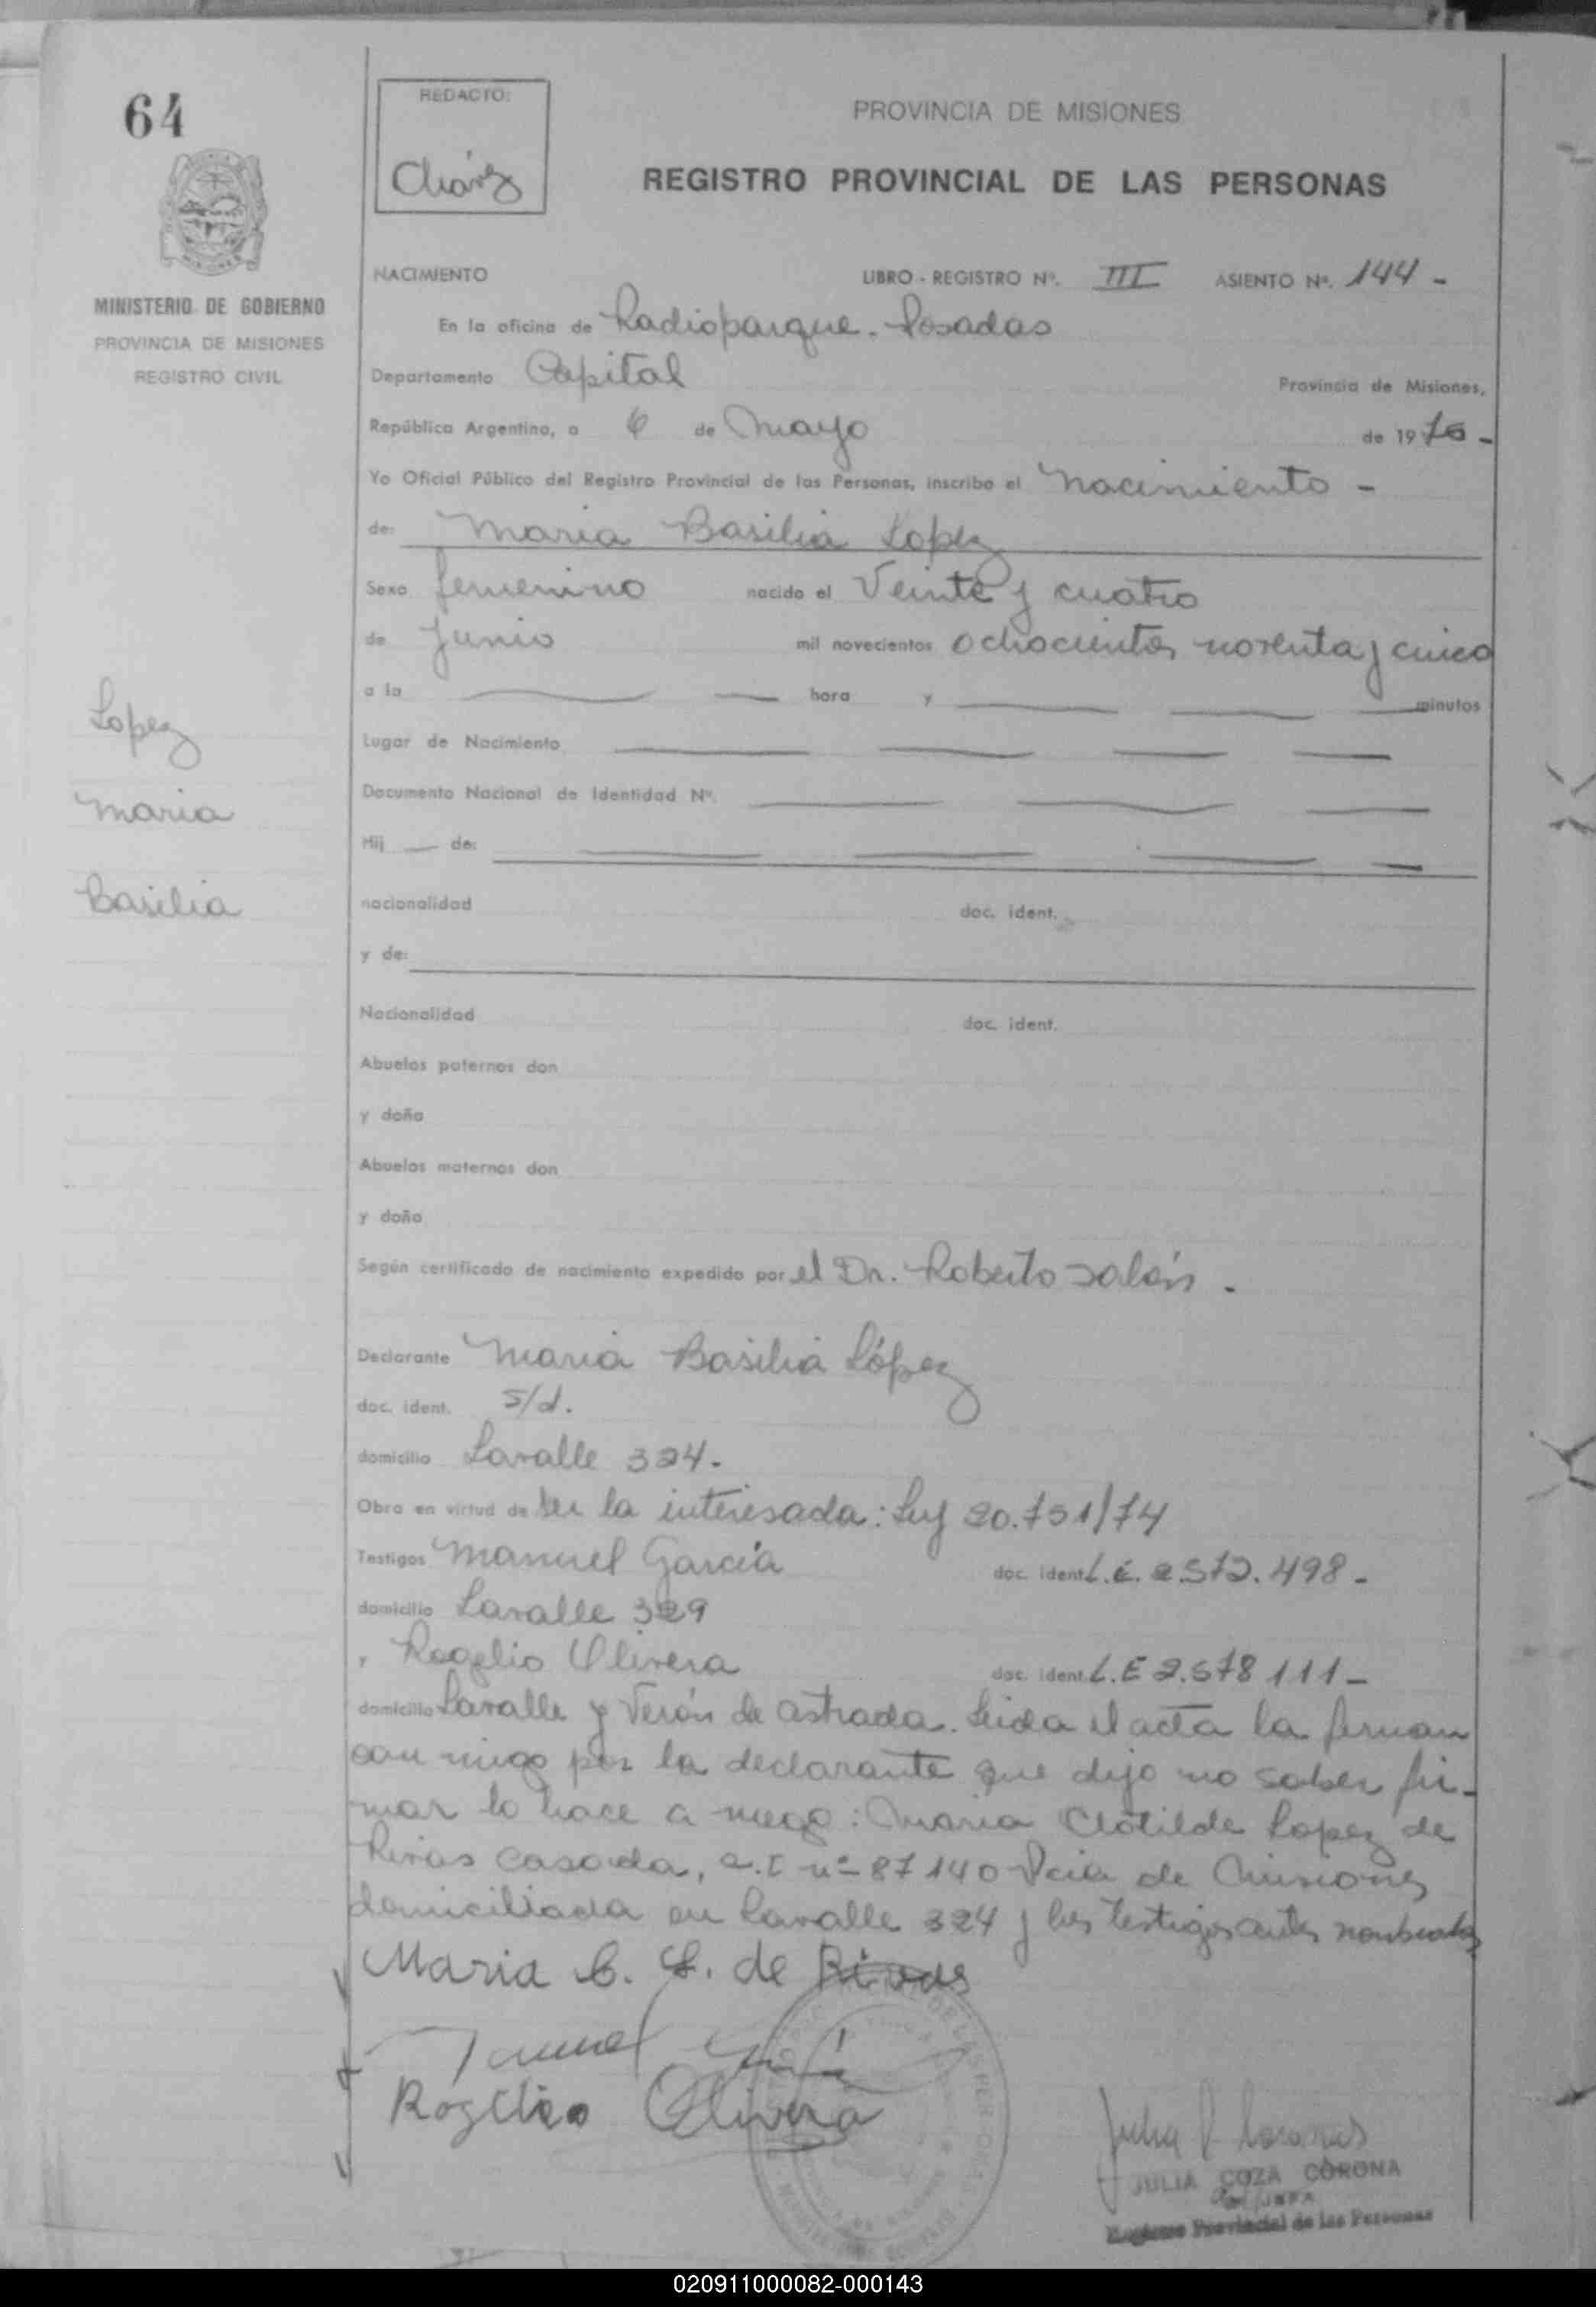 64
REDACTO:
Chávez
PROVINCIA DE MISIONES
REGISTRO PROVINCIAL DE LAS PERSONAS
MISIONES
MINISTERIO DE GOBIERNO
PROVINCIA DE MISIONES
REGISTRO CIVIL
NACIMIENTO LIBRO - REGISTRO Nº. III ASIENTO Nº. 144 -
En la oficina de Radioparque. Posadas
Departamento Capital Provincia de Misiones,
República Argentina, a 6 de Mayo de 1976 -
Yo Oficial Público del Registro Provincial de las Personas, inscribo el Nacimiento -
de: Maria Basilia Lopez
Sexo femenino nacido el Veinte y cuatro
de Junio mil novecientos ochocientos noventa y cinco
a la hora y minutos
Lopez
Maria
Basilia
Lugar de Nacimiento
Documento Nacional de Identidad Nº.
Hij — de:
nacionalidad doc. ident.
y de:
Nacionalidad doc. ident.
Abuelos paternos don
y doña
Abuelos maternos don
y doña
Según certificado de nacimiento expedido por el Dr. Roberto
Declarante Maria Basilia López
doc. ident. s/d.
domicilio Lavalle 324.
Obra en virtud de ser la interesada: Ley 20.751/74
Testigos Manuel García doc. ident. L.E. 2.572.498 -
domicilio Lavalle 329
y Rogelio Olivera doc. ident. L.E 2.578 111 -
domicilio Lavalle y Verón de Astrada. Leida el acta la firman
con migo por la declarante que dijo no saber fir-
mar lo hace a ruego: Maria Clotilde Lopez de
Rivas casada, C.I nº 87140 Pcia de Misiones
domiciliada en Lavalle 324 y los testigos antes nombrados
Maria C. L. de Rivas
Manuel García
Rogelio Olivera
JULIA COZA CORONA
JEFA
Registro Provincial de las Personas
020911000082-000143